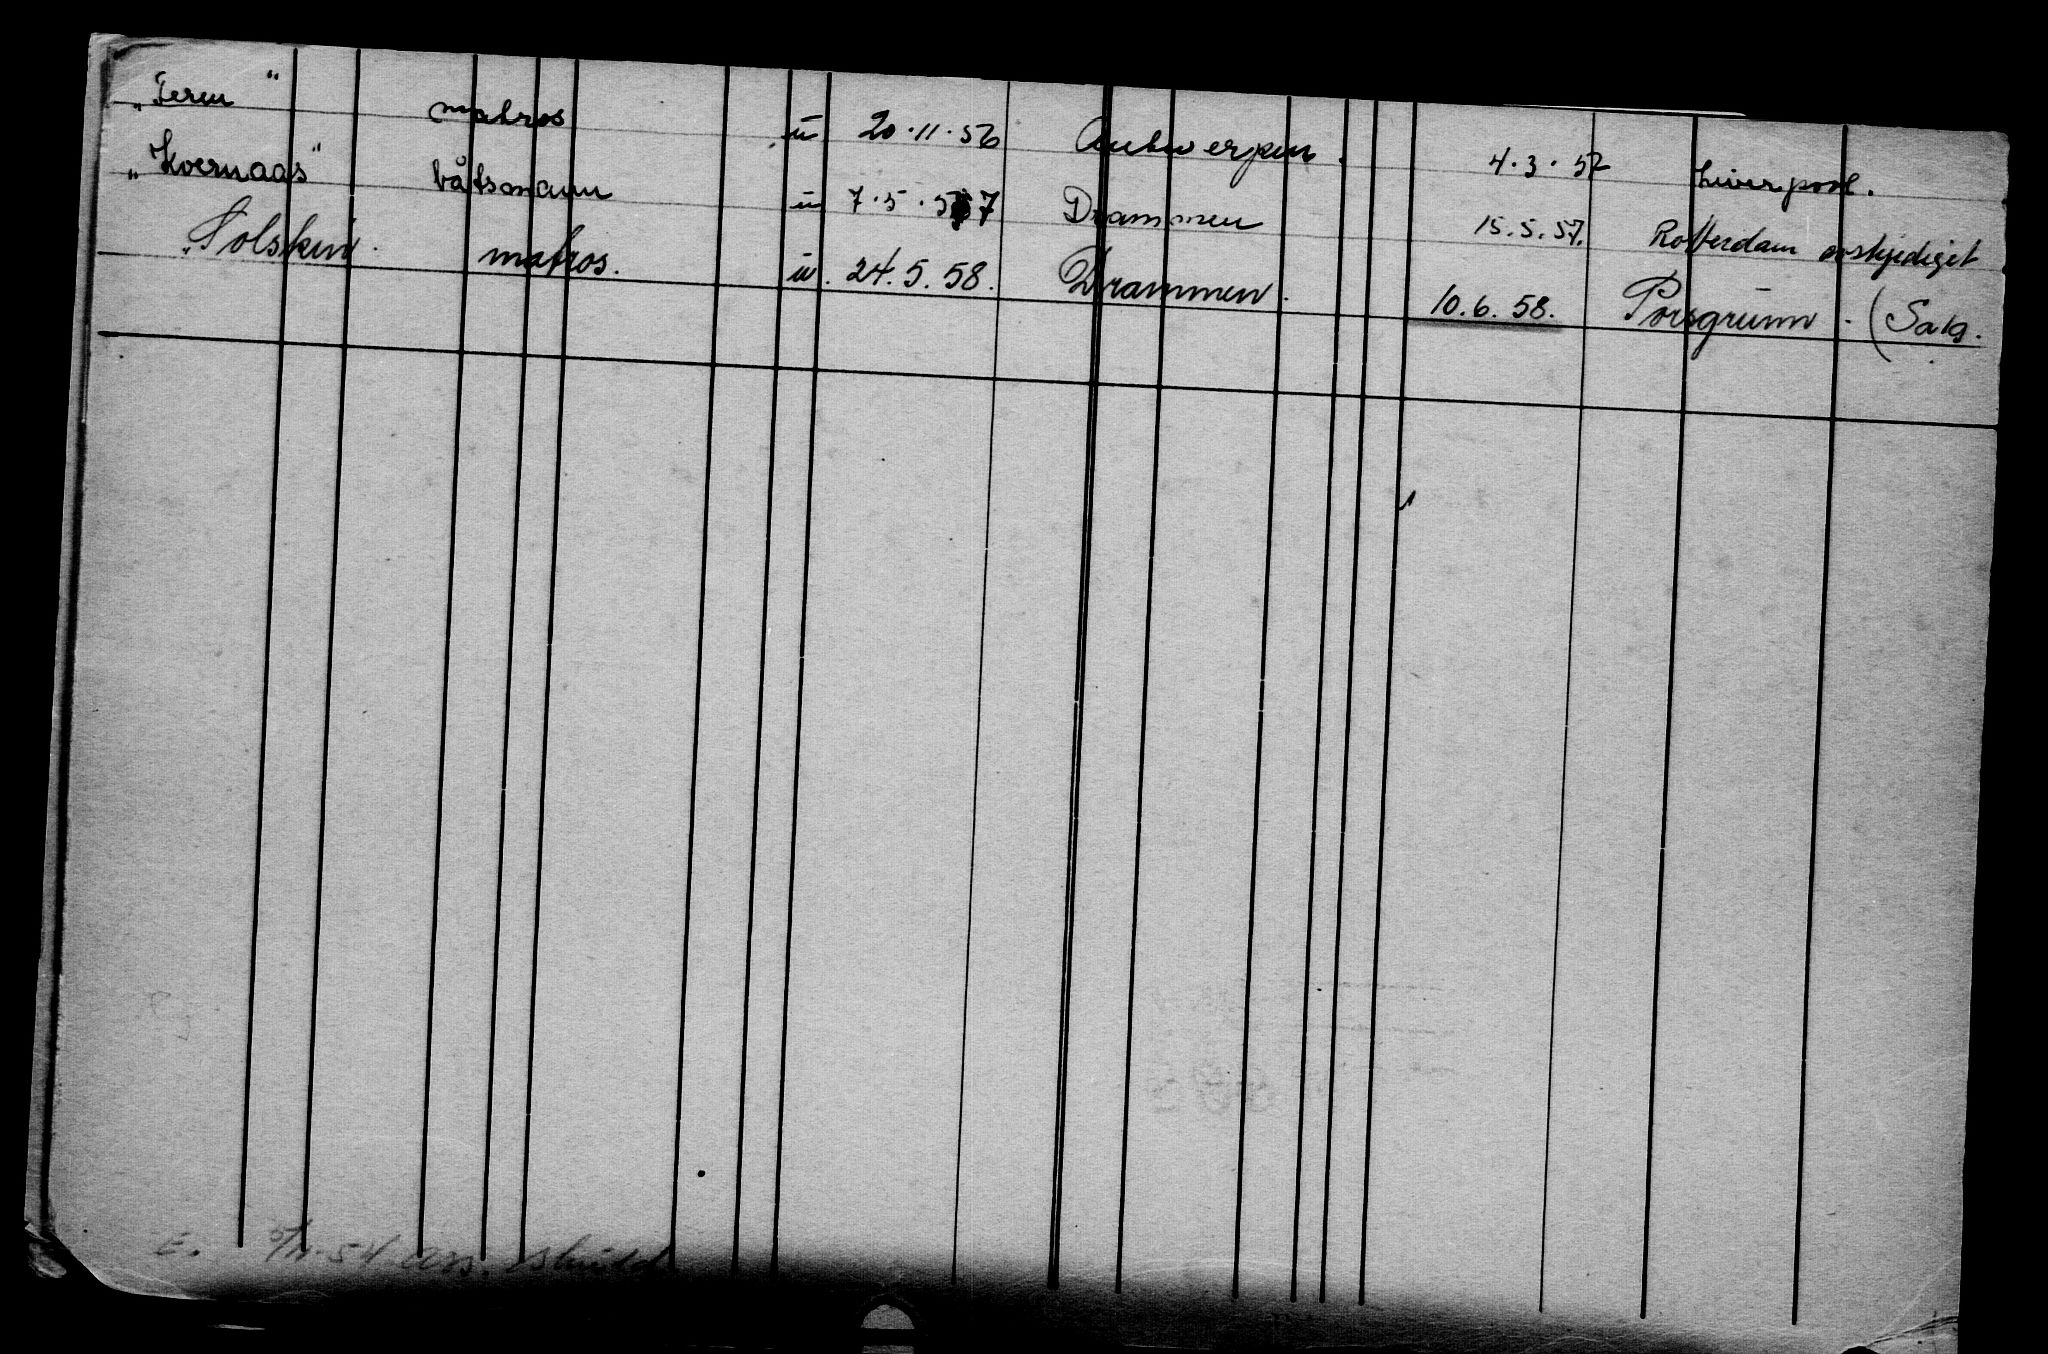 „Fern“ matros u 20.11.56 Antwerpen. 4.3.57 Liverpool.
„Kvernaas“ båtsmann u 7.5.57 Drammen 15.5.57. Rotterdam avskjediget
„Solskin. matros. u. 24.5.58. Drammen. 10.6.58. Porsgrunn. (Salg.
E. 5/11-54